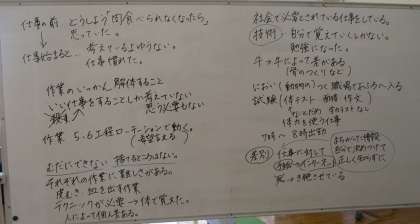 仕事の前 どうしよう「肉食べられなくなったら」
思っていた。
仕事始まると 考えているよゆうない。
仕事慣れた。
作業のいっかん 解体すること
いい仕事をすることしか考えていない
殺す 思う必要もない
作業 5.6工程ローテーションで動く。
(希望言える)
むだにできない 捨てるところはない。
それぞれの作業に難しさがある。
皮むき 血を出す作業
テクニックが必要 → 体で覚えた。
人によって個人差ある。
社会で必要とされている仕事をしている。
技術 自分で覚えていくしかない。
勉強になった。
によって差がある
(骨のつくりなど)
におい(動物の)つく 職場でおふろへ入る
試験 (体力テスト 面接 作文)
体力を使う仕事
7時~8時出勤
差別 仕事に対して
まちがった情報
自分で決めつけて
正しく知らずに
続けている